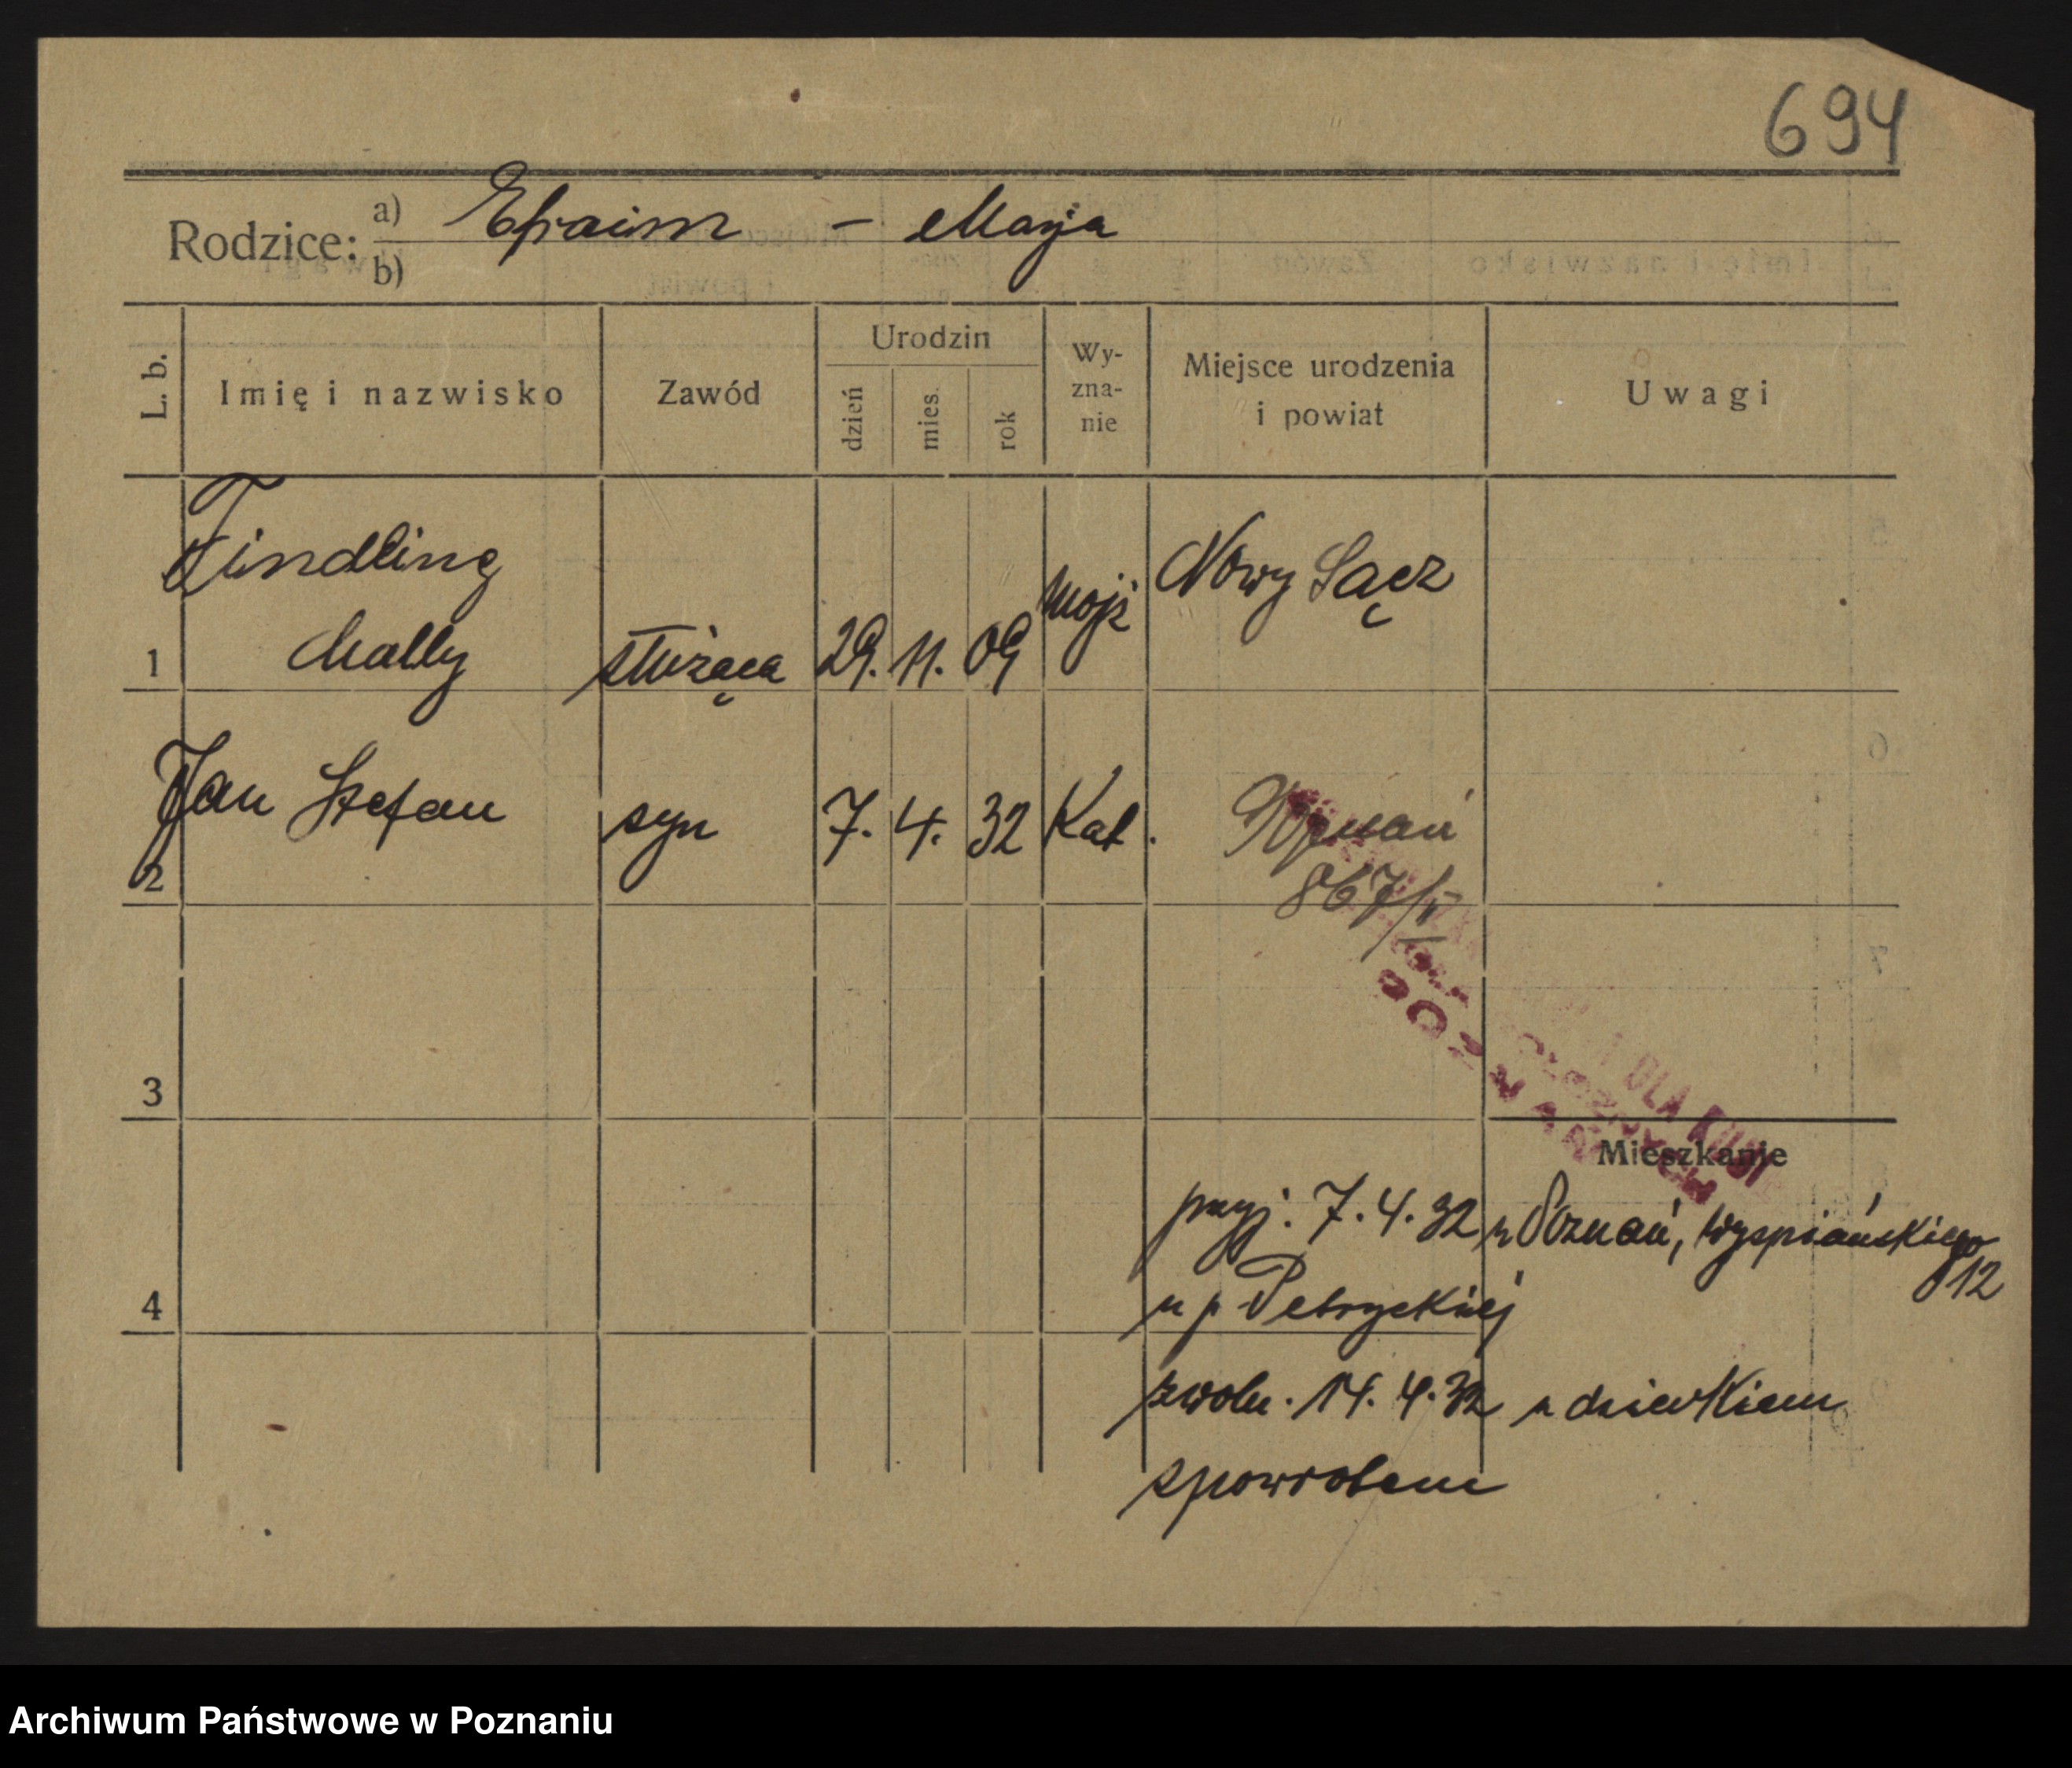 694
Rodzice: a) Efraim – Marja
b)
L. b. Imię i nazwisko Zawód Urodzin dzień mies. rok Wyznanie Miejsce urodzenia i powiat Uwagi
Findling
1 Mally służąca 29. 11. 09 mojż Nowy Sącz
Jan Stefan syn 7. 4. 32 Kat. Poznań
2 867/II
POZNAŃ
3
DLA
Mieszkanie
przyj. 7.4.32 z Poznań, Wyspiańskiego
12
4 u p Petryckiej
zwoln. 14.4.32 z dzieckiem
spowrotem
Archiwum Państwowe w Poznaniu